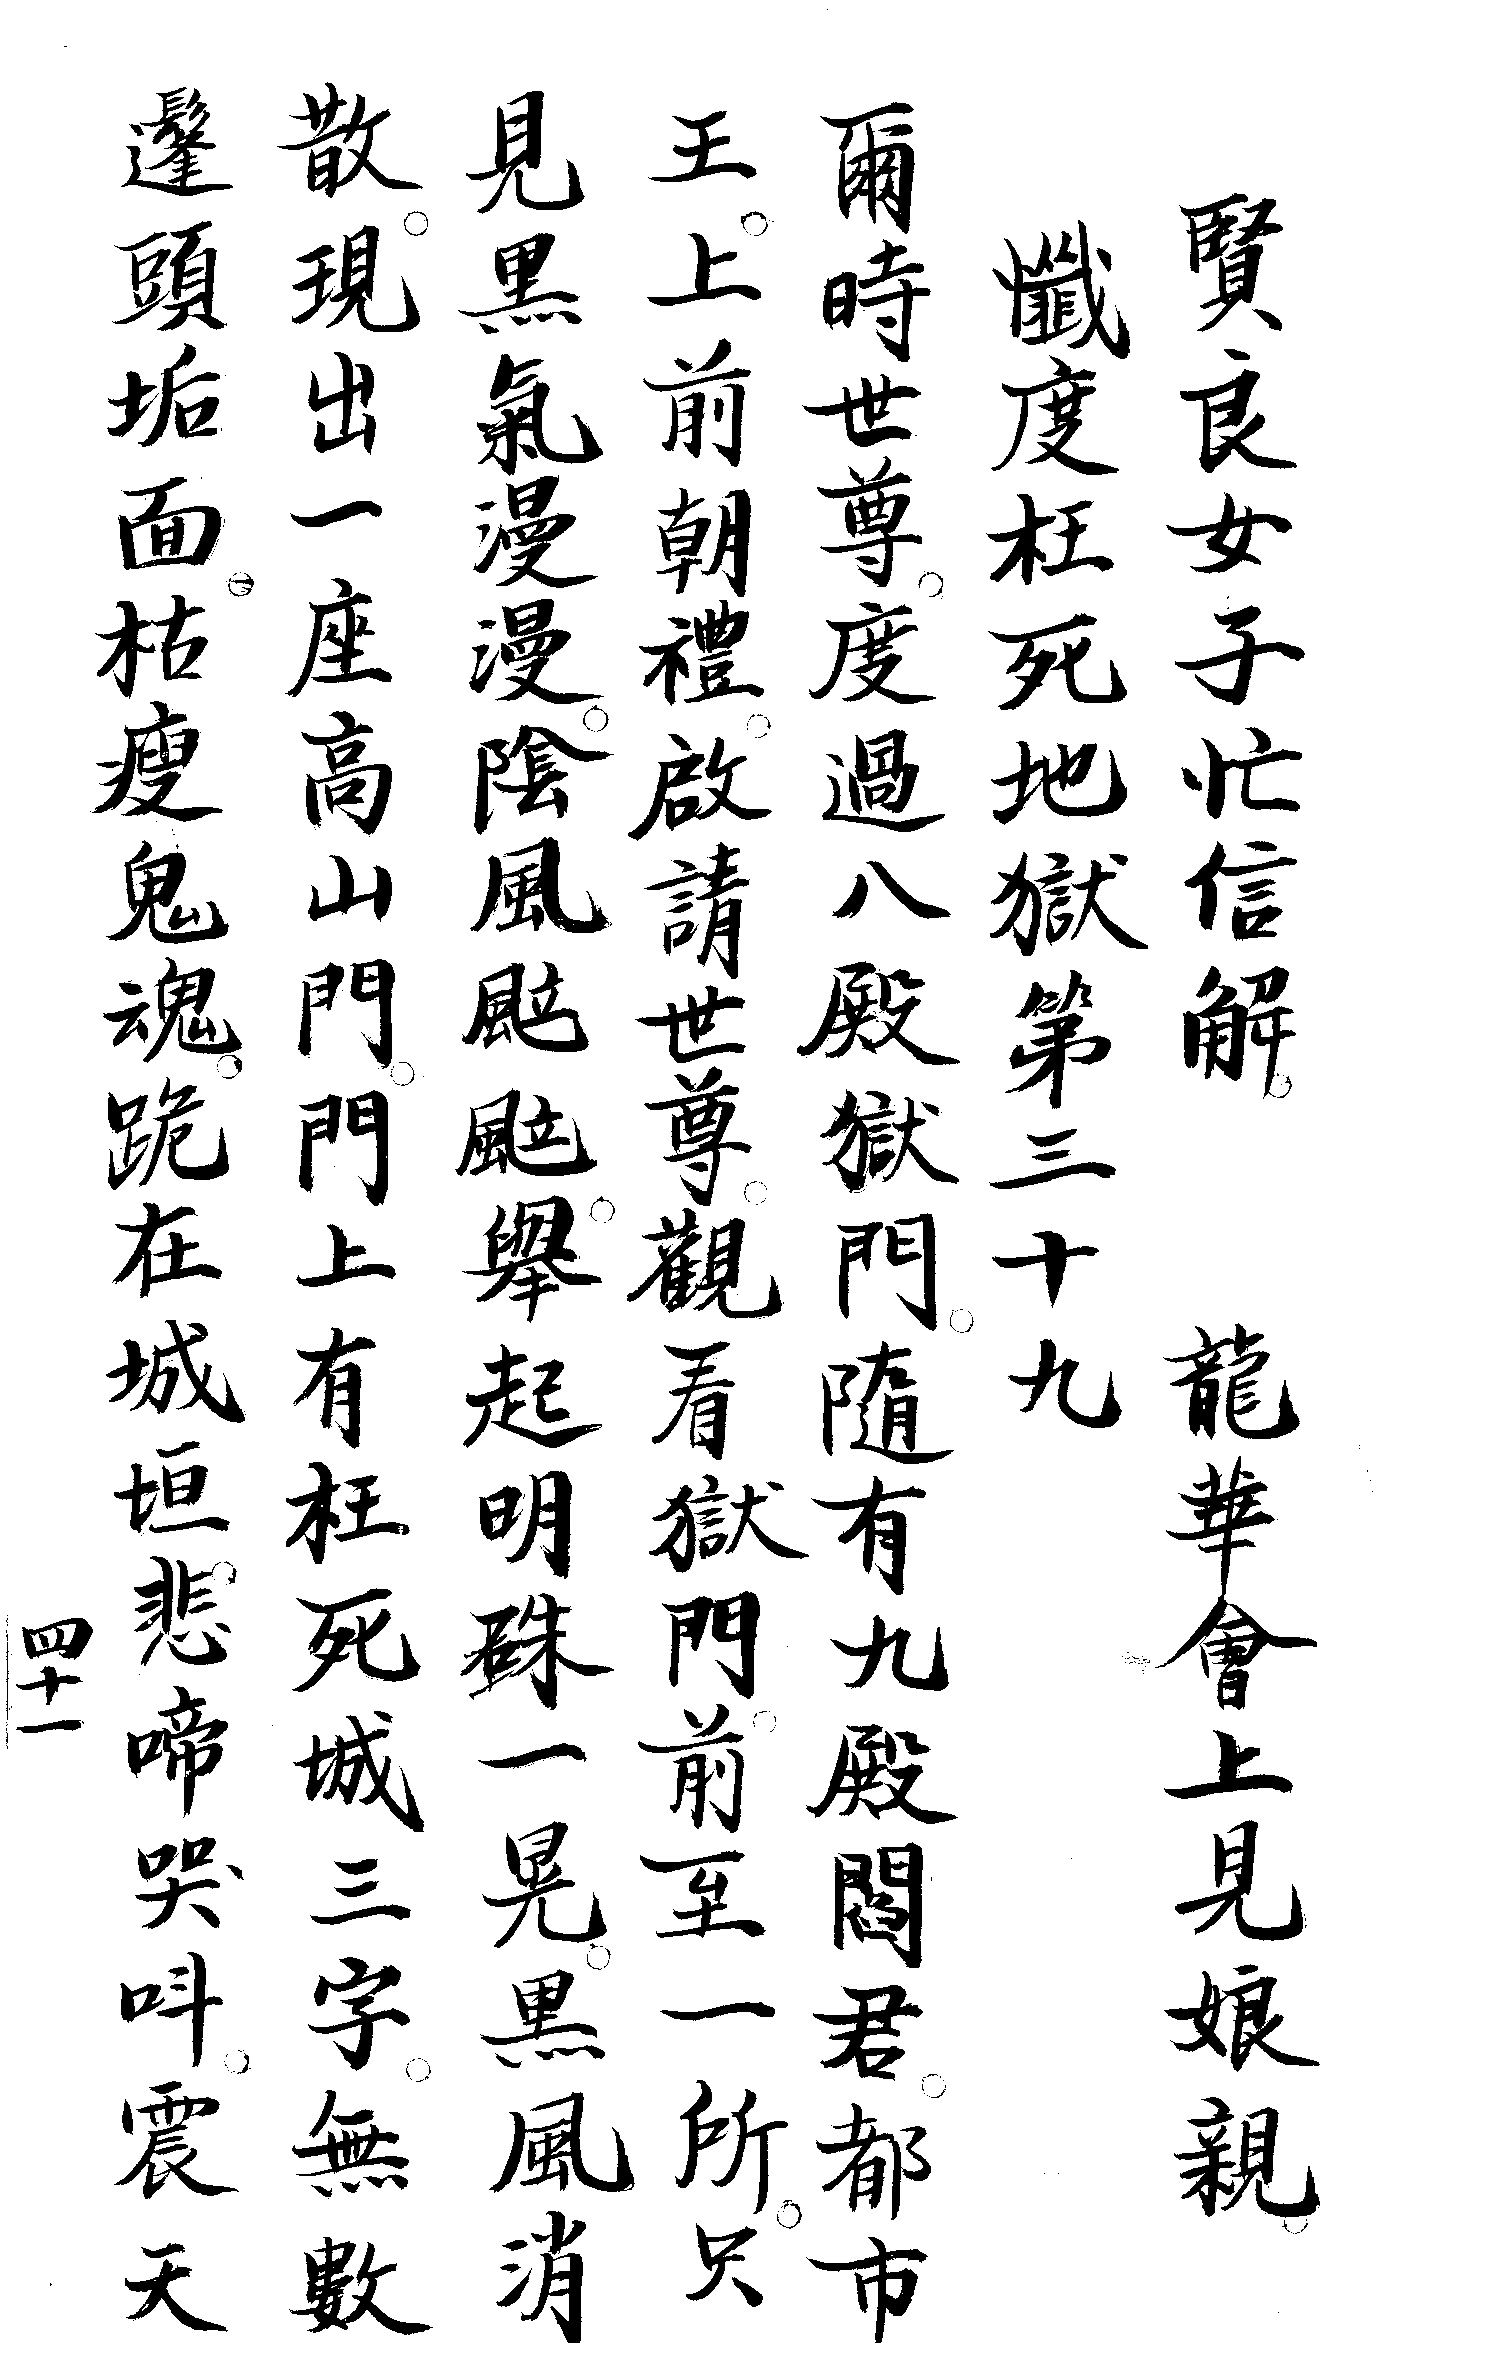 賢良女子忙信解。　龍華會上見娘親。
懺度枉死地獄第三十九
爾時世尊。度過八殿獄門。隨有九殿閻君。都市
王。上前朝禮。啟請世尊。觀看獄門。前至一所。只
見黑氣漫漫。陰風颭颭。舉起明硃一晃。黑風消
散。現出一座高山門。門上有枉死城三字。無數
鬔頭垢面。枯瘦鬼魂。跪在城垣。悲啼哭呌。震天
四十一